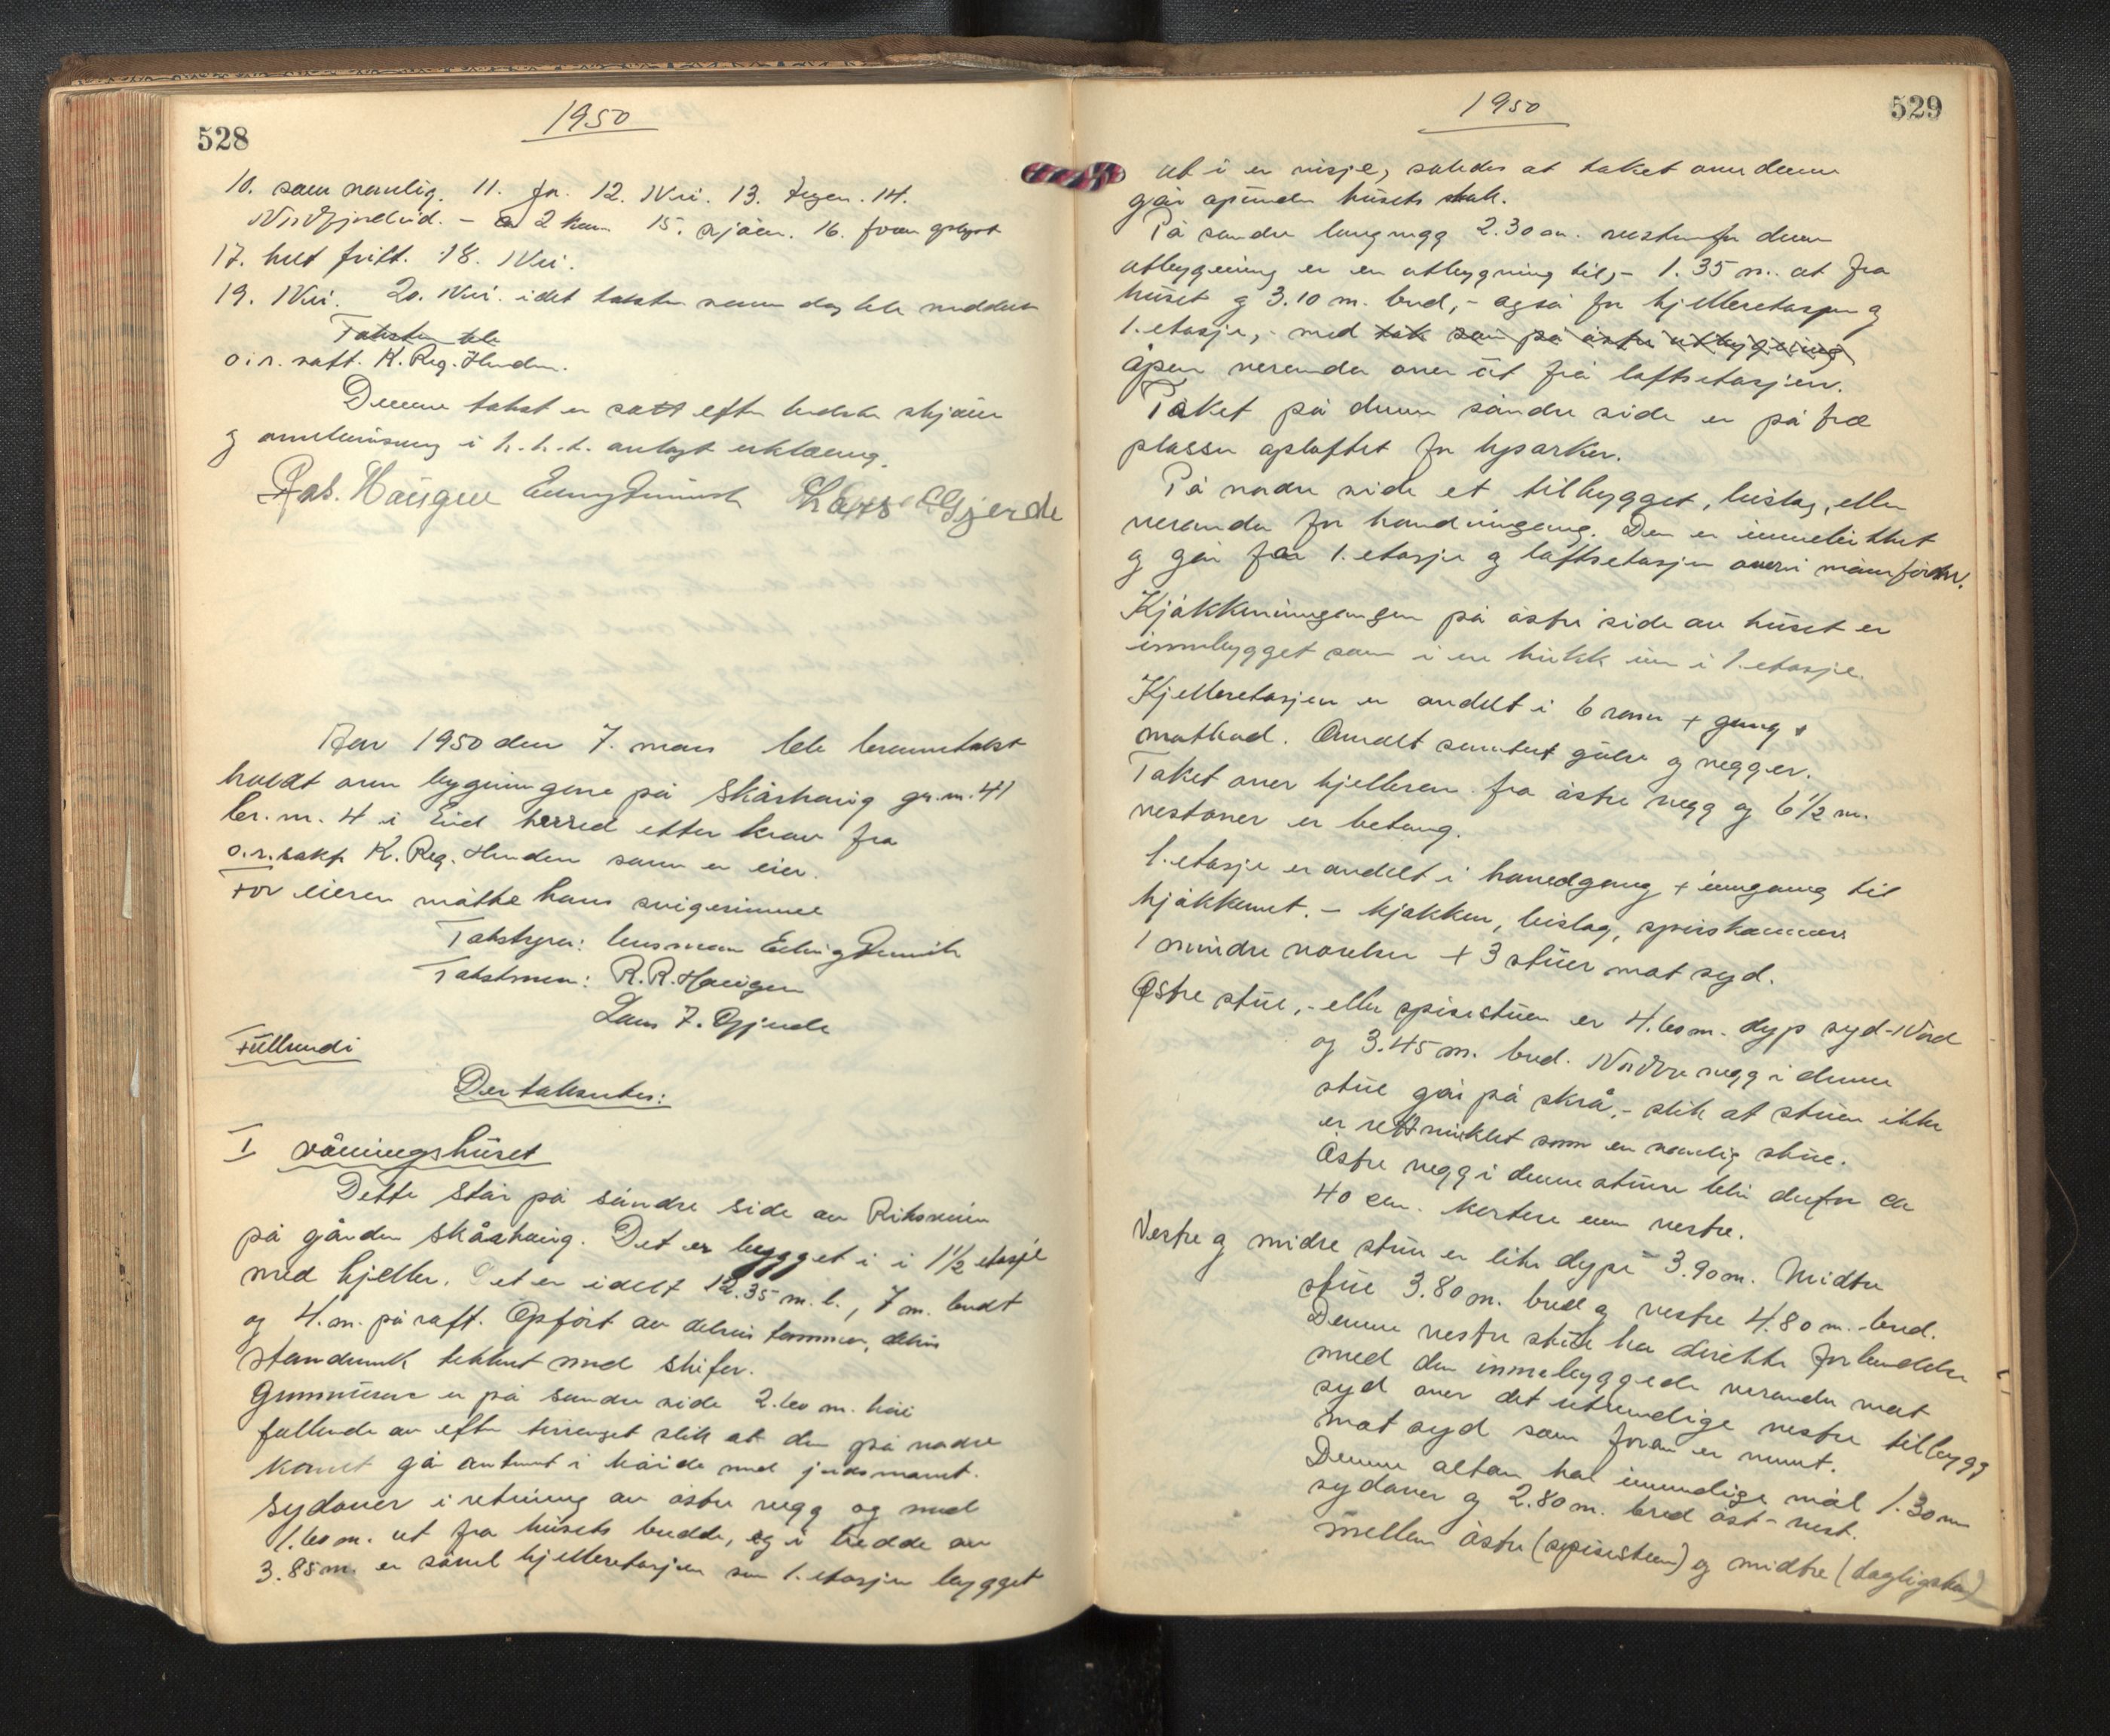 528
1950
10. som vanlig. 11. Ja. 12. Nei. 13. Ingen. 14.
Nordfjordeid. - ca 2 km. 15. sjøen. 16. foran oplyst
17. helt fritt. 18. Nei.
19. Nei. 20. Nei. idet taksten samme dag ble meddelt
Taksten ble
o.r.sakf. K. Reg. Hunden.
Denne takst er satt efter bedste skjønn
og overbevisning i h.h.t. avlagt erklæring.
Ras. Haugen Erling Lars Gjerde
Aar 1950 den 7. mars ble branntakst
holdt over bygningene på Skårhaug gr.nr. 41
br.nr. 4 i Eid herred etter krav fra
o.r.sakf. K. Reg. Hunden som er eier.
For eieren møtte hans svigerinne
Takstyrer: lensmann Erling
Takstmenn: R. R. Haugen
Lars J. Gjerde
Fullmndi
Der takseres:
I våningshuset
Dette står på søndre side av Riksveien
på gården Skårhaug. Det er bygget i i 1½ etasje
med kjeller. Det er idelt 12.35 m. l., 7 m. bredt
og 4. m. på raft. Opført av delvis tømmer, delvis
standverk tekket med skifer.
Grunnmuren er på søndre side 2.60 m. høi
fallende av efter terrenget slik at den på nordre
kant går omtrent i høide med jordsmonnet.
Sydover i retning av østre vegg og med
1.60 m. ut fra husets bredde, og i bredde av
3.85 m. er såvel kjelleretasjen som 1. etasjen bygget
1950
529
ut i en nisje, således at taket over denne
går opunder husets tak.
På søndre langvegg 2.30 m. vestenfor denne
utbygning er en utbygning til, - 1.35 m. ut fra
huset og 3.10 m. bred, - også for kjelleretasjen og
1. etasje, - med tak som på østre utbygning
åpen veranda over ut frå loftsetasjen.
Taket på denne søndre side er på tre
plasser oploftet for lysarker.
På nordre side et tilbygget, bislag, eller
veranda for hovedinngang. Den er innelukket
og går for 1. etasje og loftsetasjen overi
Kjøkkeninngangen på østre side av huset er
innebygget som i en krukk inn i 1. etasje.
Kjelleretasjen er avdelt i 6 rom + gang +
matbod. Overalt sementert gulv og vegger.
Taket over kjelleren fra østre vegg og 6½ m.
vestover er betong.
1. etasje er avdelt i hovedgang + inngang til
kjøkkenet. - kjøkken, bislag, spiskammers
1 mindre værelse + 3 stuer mot syd.
Østre stue, - eller spisestuen er 4.60 m. dyp syd-Nord
og 3.45 m. bred. Nordre vegg i denne
stue går på skrå, - slik at stuen ikke
er rettvinklet som en vanlig stue.
Østre vegg i denne stuen blir derfor ca
40 cm. kortere enn vestre.
Vestre og midre stue er like dype 3.90 m. Midtre
stue 3.80 m. bred og vestre 4.80 m. bred.
Denne vestre stue har direkte forbindelse
med den innebyggede veranda mot
syd over det utvendige vestre tilbygg
mot syd som foran er nevnt.
Denne altan har innvendige mål 1.30 m
sydover og 2.80 m. bred øst-vest.
mellem østre (spisestuen) og midtre (dagligstuen)